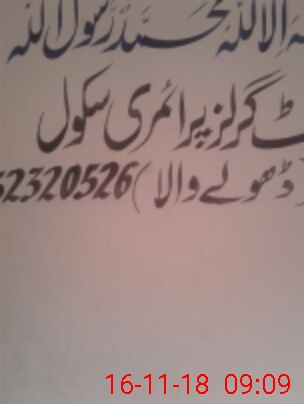 ہ الا اللہ محمد رسول اللہ
ٹ گرلز پرائمری سکول
(دھولے والا) 32320526
16-11-18 09:09